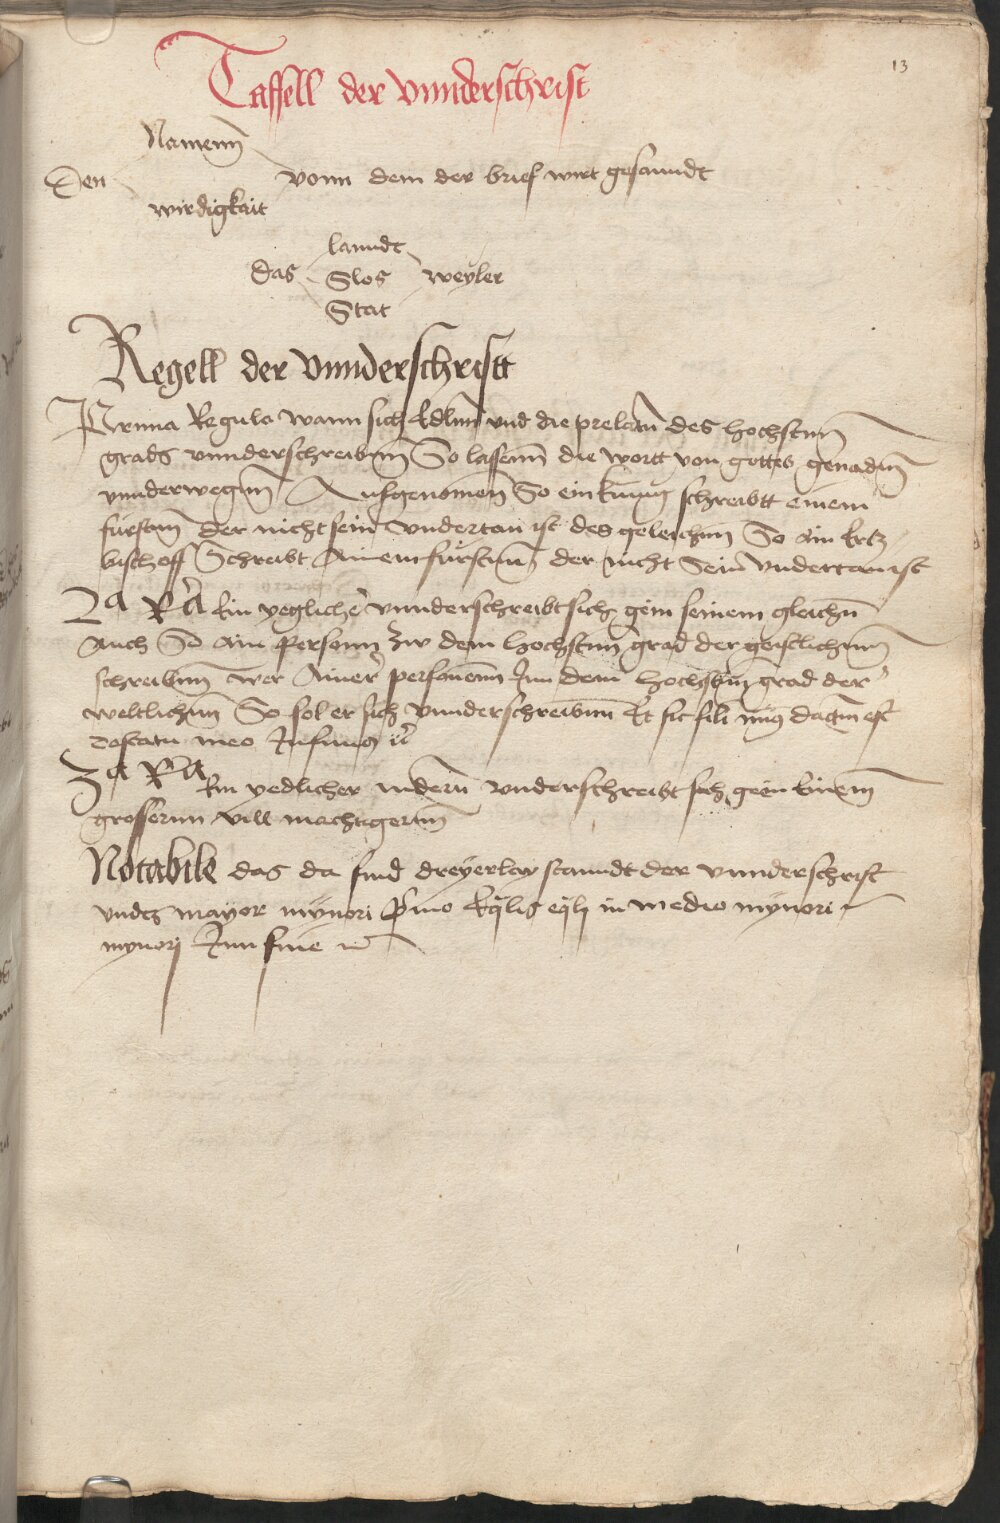 13
Taffell der vnnderschrifft
Namenn
Den
vonn dem der brief wirt gesanndt
wirdigkait
lanndt
das Slos weyler
Stat
Regell der vnnderschrifft
Prima Regula wann sich Edlen vnd die prelaten des hochsten
grads vnnderschreiben So lassenn die wortt von gottes genaden
vnnderwegen Ausgenomen So ein kunig schreibtt einem
fürsten der nicht sein vndertan ist des geleichen So ain Ertz
bischoff Schreibt Ainem fürsten der nicht Sein vndertan ist
2a Ra Ein yeglicher vnnderschreibt sich gein seinem gleichen
Auch So ain person zw dem hochsten grad der geistlichenn
schreiben wer Ainer personenn Inn dem hochsten grad der
weltlichen So sol er sich vnnderschreibenn Et sic
meo
3a Ra Ein yedlicher vnderschreibt sich gein Einem
grossernn vill machtigernn
Notabile das da sind dreyerlay stanndt der vnnderschrifft
mayor mynori in medio mynori
mynori Inn fine